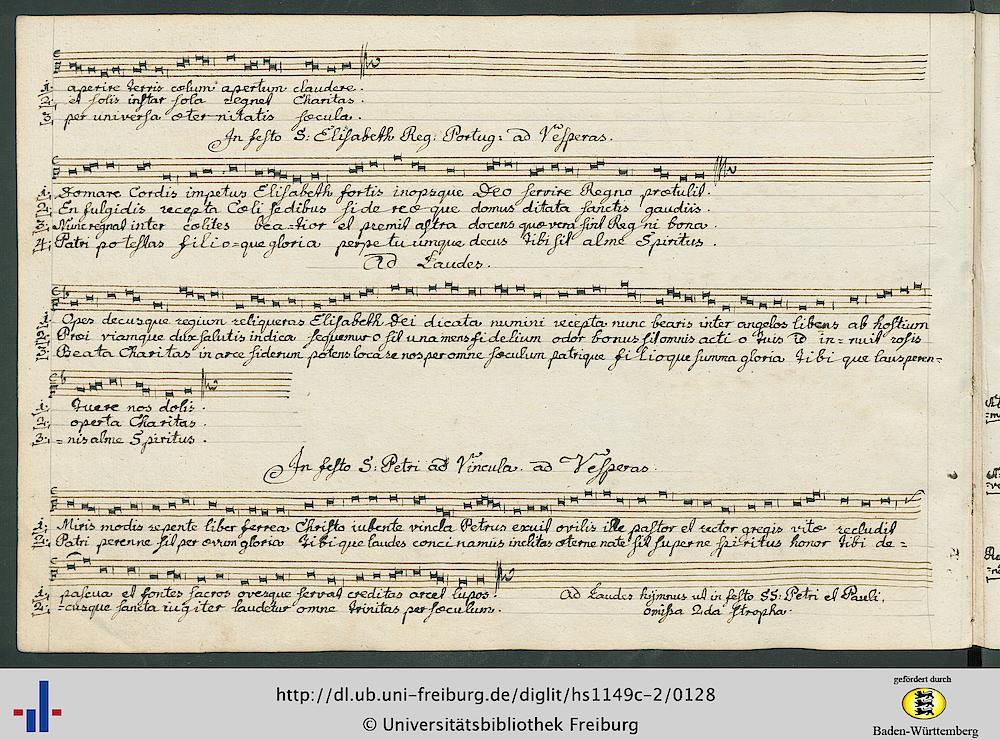 1. aperire terris cœlum apertum claudere.
2. et solis instar sola regnet Charitas.
3. per universa æternitatis sæcula.
In festo S: Elisabeth Reg: Portug: ad Vesperas.
1. Domare Cordis impetus Elisabeth fortis inopsque Deo servire Regno prætulit.
2. En fulgidis recepta Cœli sedibus sidereæque domus ditata sanctis gaudiis.
3. Nunc regnat inter cœlites beatior et premit astra docens quæ vera sint Regni bona.
4. Patri potestas filio=que gloria perpetuumque decus tibi sit alme Spiritus.
Ad Laudes.
1. Opes decusque regium reliqueras Elisabeth Dei dicata numini recepta nunc bearis inter angelos libens ab hostium
2. Præi viamque dux salutis indica sequemur o sit una mens fidelium odor bonus sit omnis actio tuis id in=nuit rosis
3. Beata Charitas in arce siderum potens locare nos per omne sæculum patrique filioque summa gloria tibi que laus peren=
1. tuere nos dolis.
2. operta Charitas.
3. =nis alme Spiritus.
In festo S: Petri ad Vincula. ad Vesperas.
1. Miris modis repente liber ferrea Christo iubente vincla Petrus exuit ovilis ille pastor et rector gregis vitæ recludit
2. Patri perenne sit per ævum gloria tibique laudes concinamus inclitas æterne nate sit superne spiritus honor tibi de=
1. pascua et fontes sacros ovesque servat creditas arcet lupos.
2. =cusque sancta iugiter laudetur omne trinitas per sæculum.
Ad Laudes hÿmnus ut in festo SS: Petri et Pauli,
omissa 2da stropha.
http://dl.ub.uni-freiburg.de/diglit/hs1149c-2/0128
© Universitätsbibliothek Freiburg
gefördert durch
Baden-Württemberg